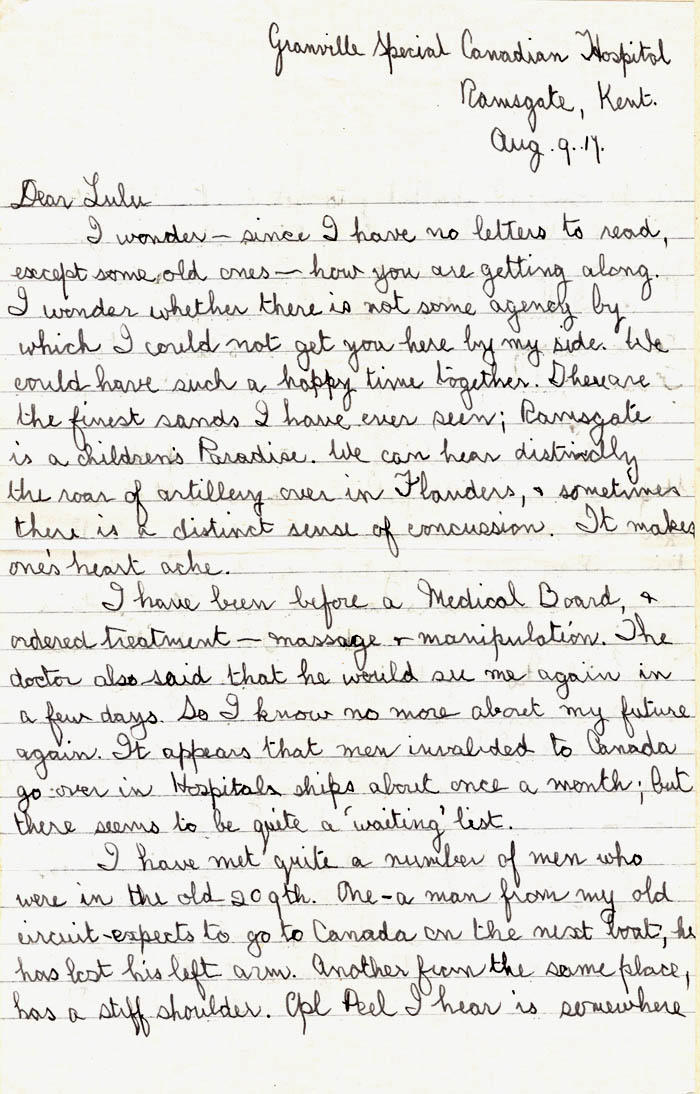 Granville Special Canadian Hospital
Ramsgate, Kent.
Aug. 9. 17.
Dear Lulu
I wonder – since I have no letters to read,
except some old ones – how you are getting along.
I wonder whether there is not some agency by
which I could not get you here by my side. We
could have such a happy time together. There are
the finest sands I have ever seen; Ramsgate
is a children's Paradise. We can hear distinctly
the roar of artillery over in Flanders, & sometimes
there is a distinct sense of concussion. It makes
one's heart ache.
I have been before a Medical Board, &
ordered treatment – massage & manipulation. The
doctor also said that he would see me again in
a few days. So I know no more about my future
again. It appears that men invalided to Canada
go over in Hospitals ships about once a month; but
there seems to be quite a 'waiting' list.
I have met quite a number of men who
were in the old 209th. One – a man from my old
circuit – expects to go to Canada on the next boat, he
has lost his left arm. Another from the same place,
has a stiff shoulder. Cpl Peel I hear is somewhere